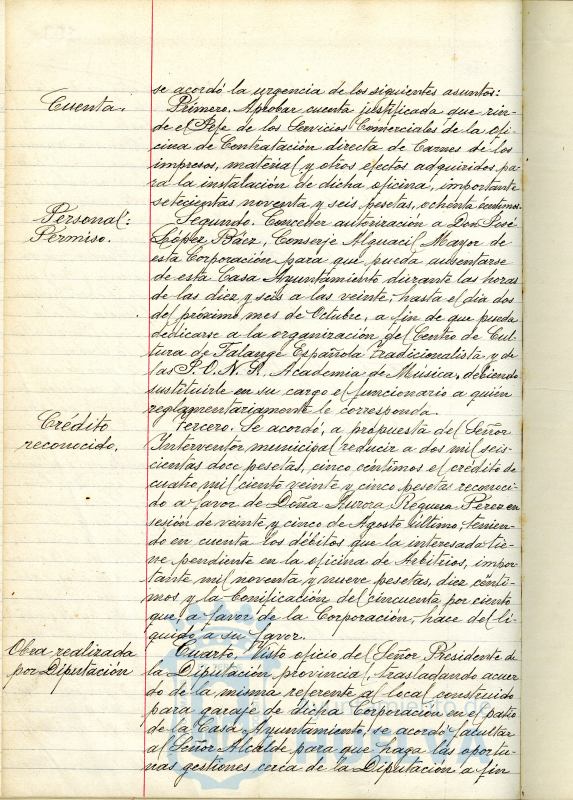 se acordó la urgencia de los siguientes asuntos:
Cuenta.
Primero. Aprobar cuenta justificada que rin-
de el Jefe de los Servicios Comerciales de la ofi-
cina de Contratación directa de Carnes de los
impresos, material y otros efectos adquiridos pa-
ra la instalación de dicha oficina, importante
setecientas noventa y seis pesetas, ochenta céntimos.
Personal:
Permiso.
Segundo. Conceder autorización a Don José
López Báez, Conserje Alguacil Mayor de
esta Corporación para que pueda ausentarse
de esta Casa Ayuntamiento durante las horas
de las diez y seis a las veinte, hasta el día dos
del próximo mes de Octubre, a fin de que pueda
dedicarse a la organización del Centro de Cul-
tura de Falange Española Tradicionalista y de
las J.O.N.S. Academia de Musica, debiendo
sustituirle en su cargo el funcionario a quién
reglamentariamente le corresponda.
Crédito
reconocido.
Tercero. Se acordó, a propuesta del Señor
Interventor municipal reducir a dos mil seis-
cientas doce pesetas, cinco céntimos el crédito de
cuatro mil ciento veinte y cinco pesetas reconoci-
do a favor de Doña Aurora Réguera Pérez en
sesión de veinte y cinco de Agosto último, tenien-
do en cuenta los débitos que la interesada tie-
ne pendiente en la oficina de Arbitrios, impor-
tante mil noventa y nueve pesetas, diez cénti-
mos y la bonificación del cincuenta por ciento
que, a favor de la Corporación, hace del lí-
quido a su favor.
Obra realizada
por Diputación
Cuarto. Visto oficio del Señor Presidente de
la Diputación provincial, trasladando acuer-
do de la misma referente al local construido
para garaje de dicha Corporación en el patio
de la Casa Ayuntamiento, se acordó facultar
al Señor Alcalde para que haga las oportu-
nas gestiones cerca de la Diputación a fin